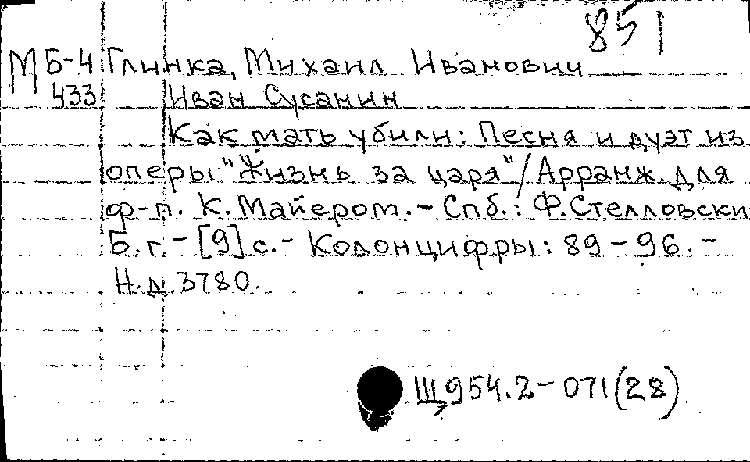 851
М Б-4 Глинка, Михаил Иванович
433 Иван Сусанин
Как мать убили: Песня и дуэт из
оперы "Жизнь за царя"/Арранж. для
ф-п. К. Майером. - Спб.: Ф. Стелловски
Б. г. - [9] с. - Колонцифры: 89-96. -
Н. д. 3780.
Щ954.2-071(28)